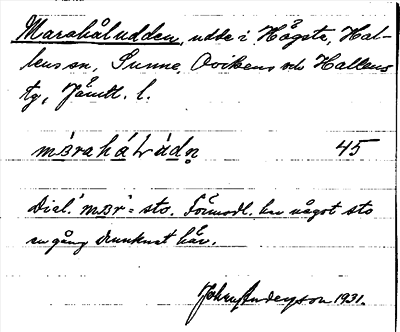 Marahåludden, udde i Högsta, Hal-
lens sn, Sunne, Ovikens och Hallens
tg, Jämtl. l.
mɜrahálrádn̥ 45
Dial. 'mɜr' = sto. Förmodl. har något sto
en gång drunknat här.
John Anderson 1931.